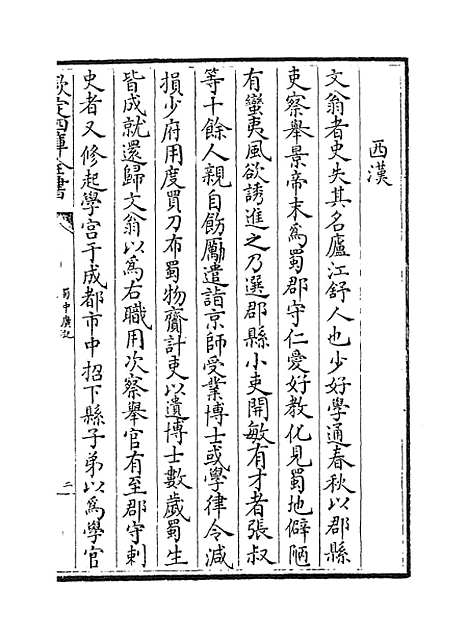 西漢
文翁者史失其名廬江舒人也少好學通春秋以郡縣
吏察舉景帝末為蜀郡守仁愛好教化見蜀地僻陋
有蠻夷風欲誘進之乃選郡縣小吏開敏有才者張叔
等十餘人親自飭厲遣詣京師受業博士或學律令減
損少府用度買刀布蜀物齎計吏以遺博士數歲蜀生
皆成就還歸文翁以為右職用次察舉官有至郡守刺
史者又修起學宮于成都市中招下縣子弟以為學官
欽定四庫全書
蜀中廣記
二